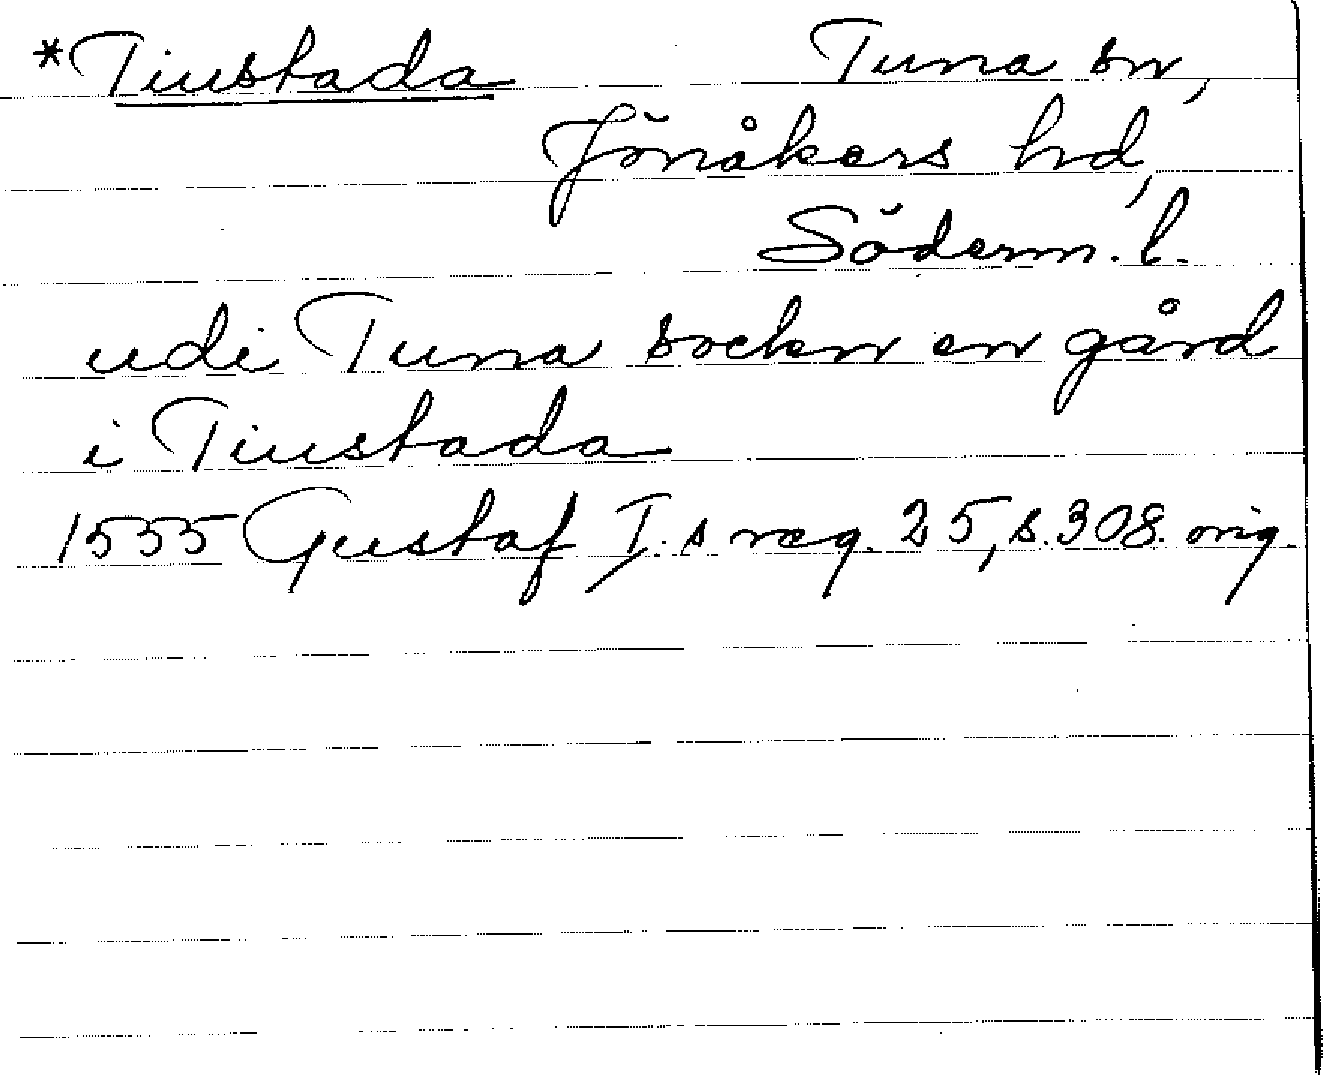 *Tiustada Tuna sn,
Jönåkers hd,
Söderm. l.
udi Tuna sockn en gård
i Tiustada
1555 Gustaf I. s reg. 25, s. 308. orig.